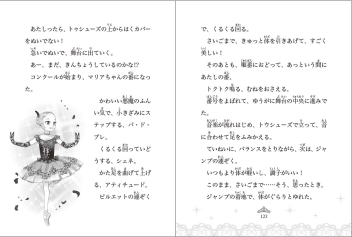 あたしったら、トゥシューズの上からはくカバー
をぬいでない！
急いでぬいで、舞台に出ていく。
あー、まだ、きんちょうしているのかな!?
コンクールが始まり、マリアちゃんの番になっ
た。
かわいい悪魔のふん
い気で、小きざみにス
テップする、パ・ド・
ブレ。
くるくる回っていど
うする、シェネ。
かた足を曲げて上げ
る、アティチュード。
ピルエットの連ぞく
で、くるくる回る。
さいごまで、きゅっと体を引きあげて、すごく
美しい！
そのあとも、順番におどって、あっという間に
あたしの番。
トクトク鳴る、むねをおさえる。
番号をよばれて、ゆうがに舞台の中央に進みで
た。
音楽が流れはじめ、トゥシューズで立って、音
に合わせて足をふみかえる。
ていねいに、バランスをとりながら、次は、ジャ
ンプの連ぞく。
いつもより体が軽いし、調子がいい！
このまま、さいごまで……そう、思ったとき、
ジャンプの着地で、体がぐらりとゆれた。
123